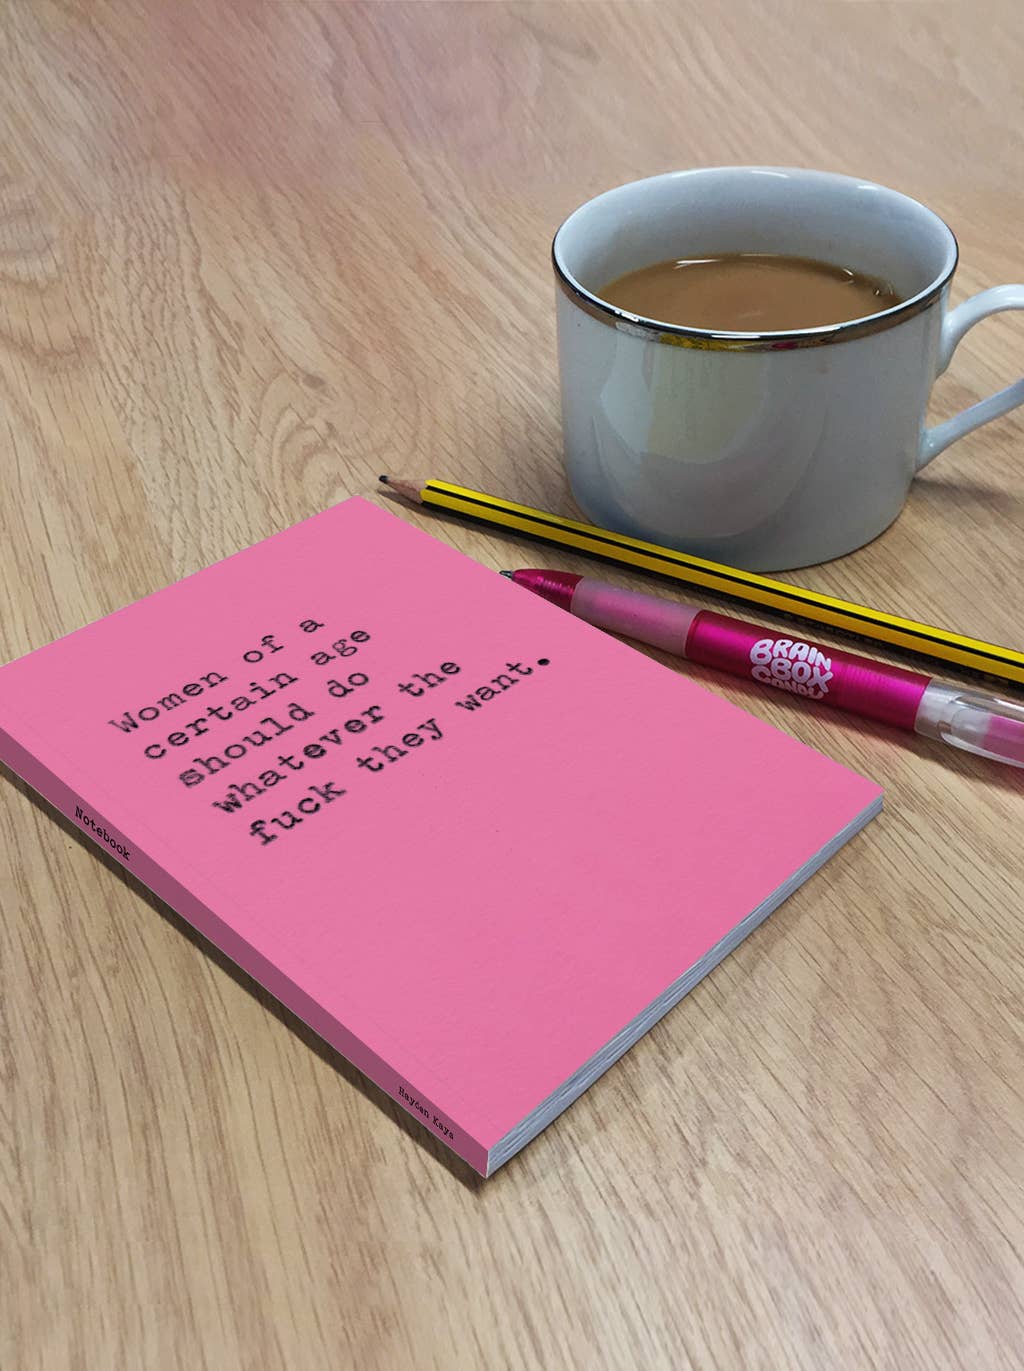 Women of a
certain age
should do
whatever the
fuck they want.
Notebook
Hayden Kaya
BRAIN
BOX
CANDY